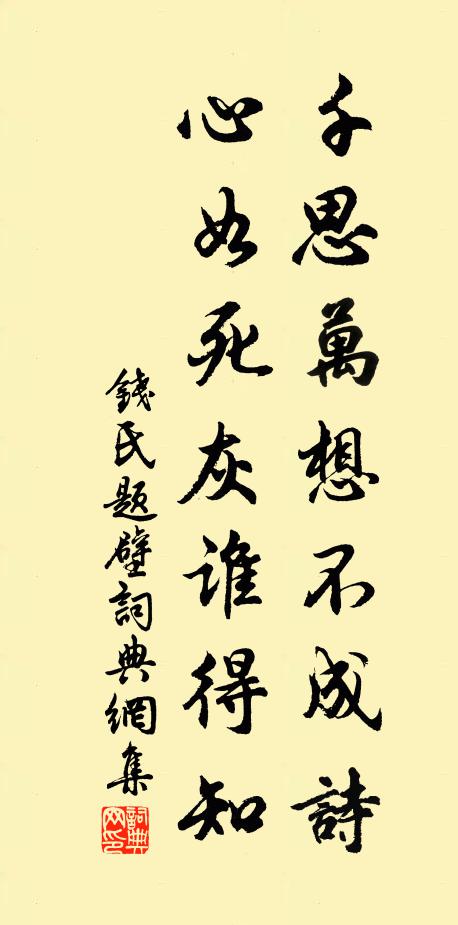 千思萬想不成詩
心如死灰谁得知
錢氏題壁詞典網集
詞典網印